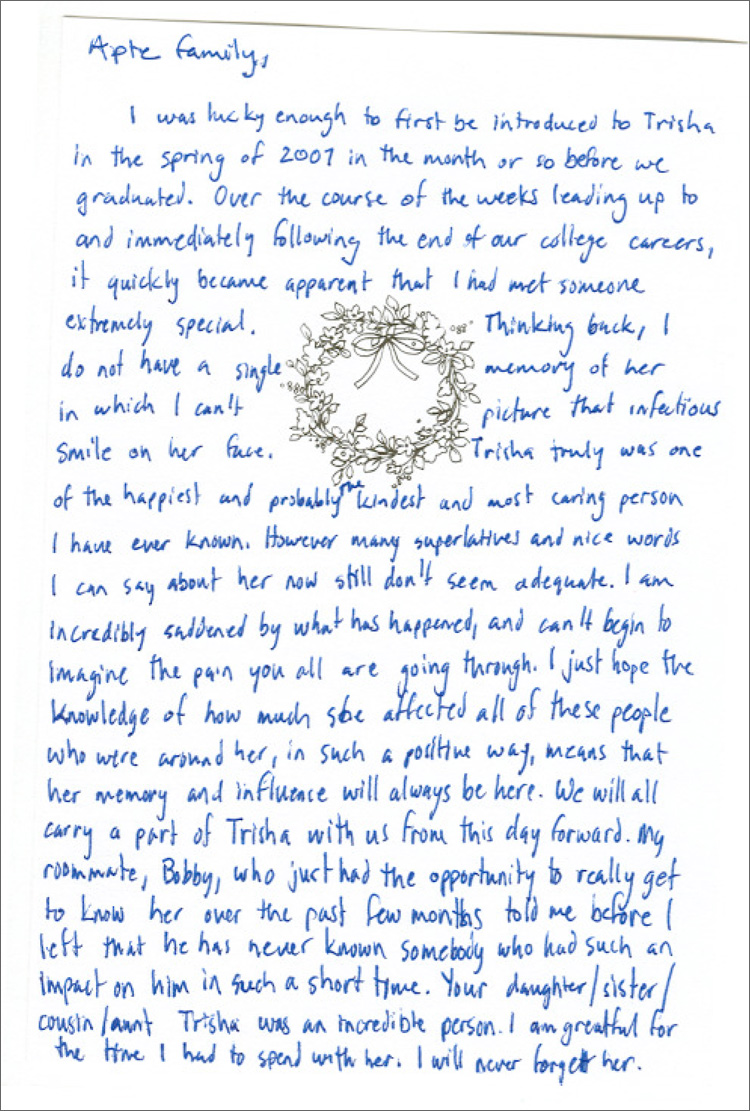 Apte Family,
I was lucky enough to first be introduced to Trisha
in the spring of 2007 in the month or so before we
graduated. Over the course of the weeks leading up to
and immediately following the end of our college careers,
it quickly became apparent that I had met someone
extremely special. Thinking back, I
do not have a single memory of her
in which I can't picture that infectious
smile on her face. Trisha truly was one
of the happiest and probably the kindest and most caring person
I have ever known. However many superlatives and nice words
I can say about her now still don't seem adequate. I am
incredibly saddened by what has happened, and can't begin to
imagine the pain you all are going through. I just hope the
knowledge of how much she affected all of these people
who were around her, in such a positive way, means that
her memory and influence will always be here. We will all
carry a part of Trisha with us from this day forward. My
roommate, Bobby, who just had the opportunity to really get
to know her over the past few months told me before I
left that he has never known somebody who had such an
impact on him in such a short time. Your daughter/sister/
cousin/aunt Trisha was an incredible person. I am greatful for
the time I had to spend with her. I will never forget her.